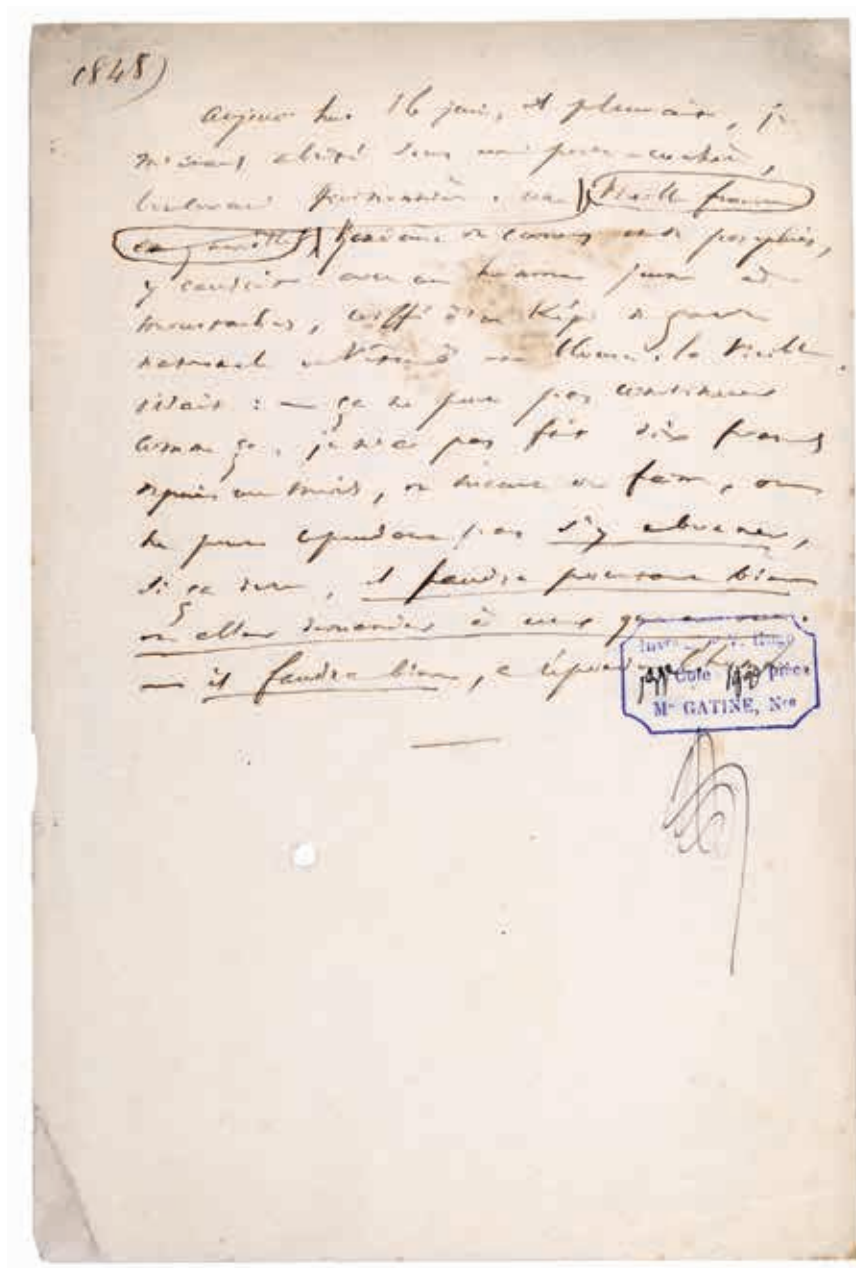 (1848)
Aujourd'hui 16 juin, il pleuvait, je
m'étais abrité sous une porte-cochère,
boulevard Poissonnière. une vieille femme
en guenilles, de cannes et de parapluies,
y causait avec un homme jeune à
moustaches, coiffé d'un képi de garde
national et vêtu d'une blouse. la vieille
disait : — ça ne peut pas continuer
comme ça. je n'ai pas fait dix francs
depuis un mois, on meurt de faim, on
ne peut cependant pas s'y abonner,
si ça dure, il faudra pourtant bien
en aller demander à ceux qui en ont.
— il faudra bien, a répondu l'homme
Invre V. Hugo
Cote pièce
Me GATINE, Nre